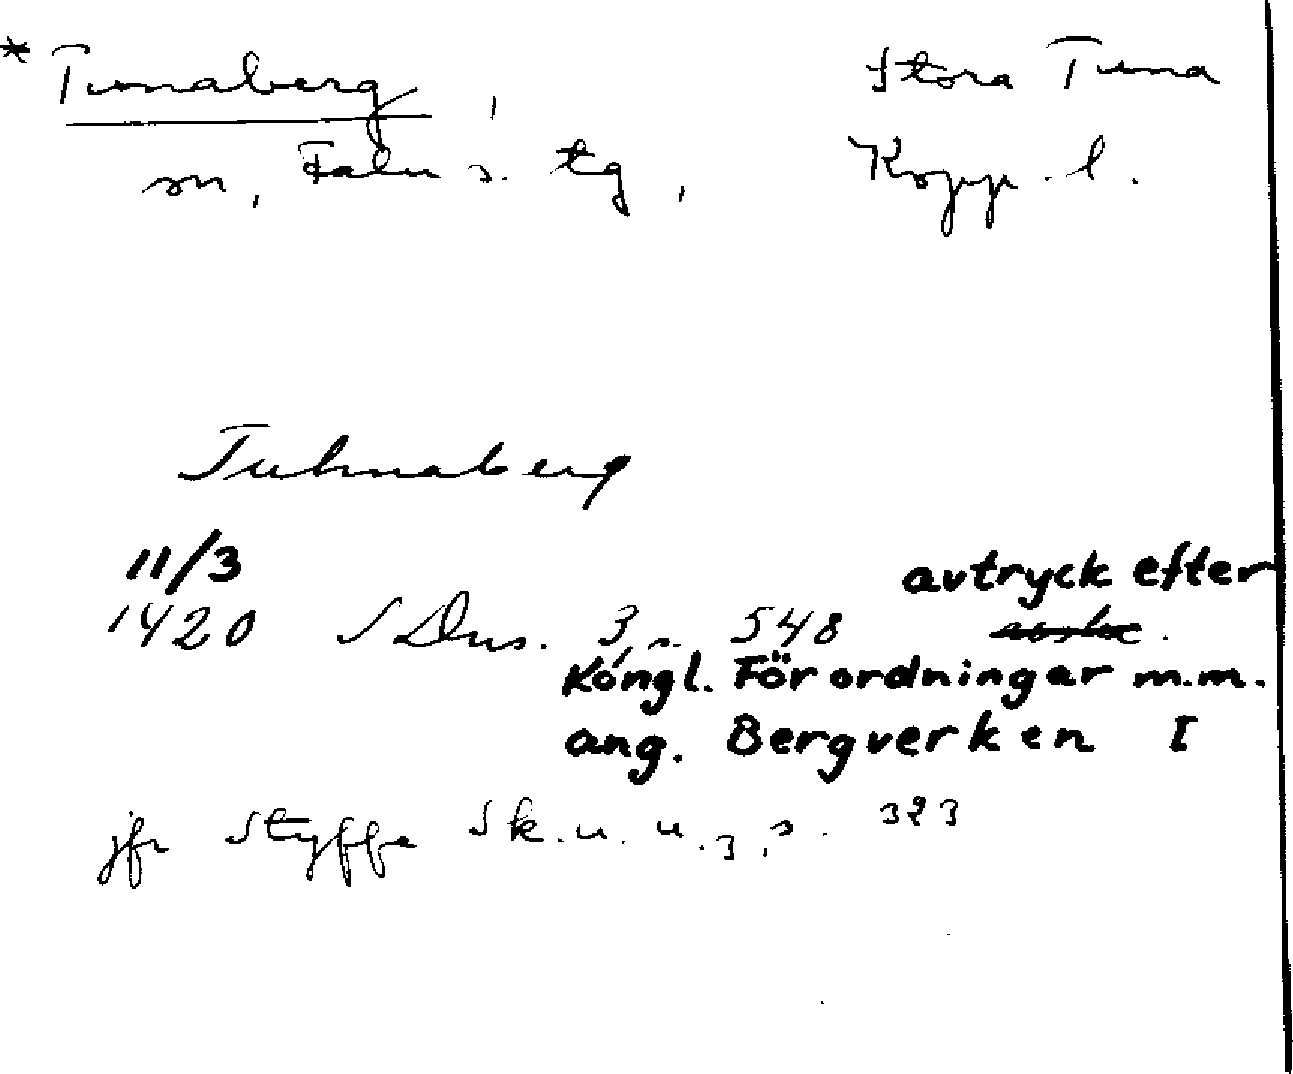 * Tunaberg, Stora Tuna
sn, Falu s. tg, Kopp. l.
Tuhnaberg
11/3 avtryck efter
1420 SDns. 3, s. 548
Kongl. Förordningar m.m.
ang. Bergverken I
jfr Styffe Sk. u. u. 3, s. 323